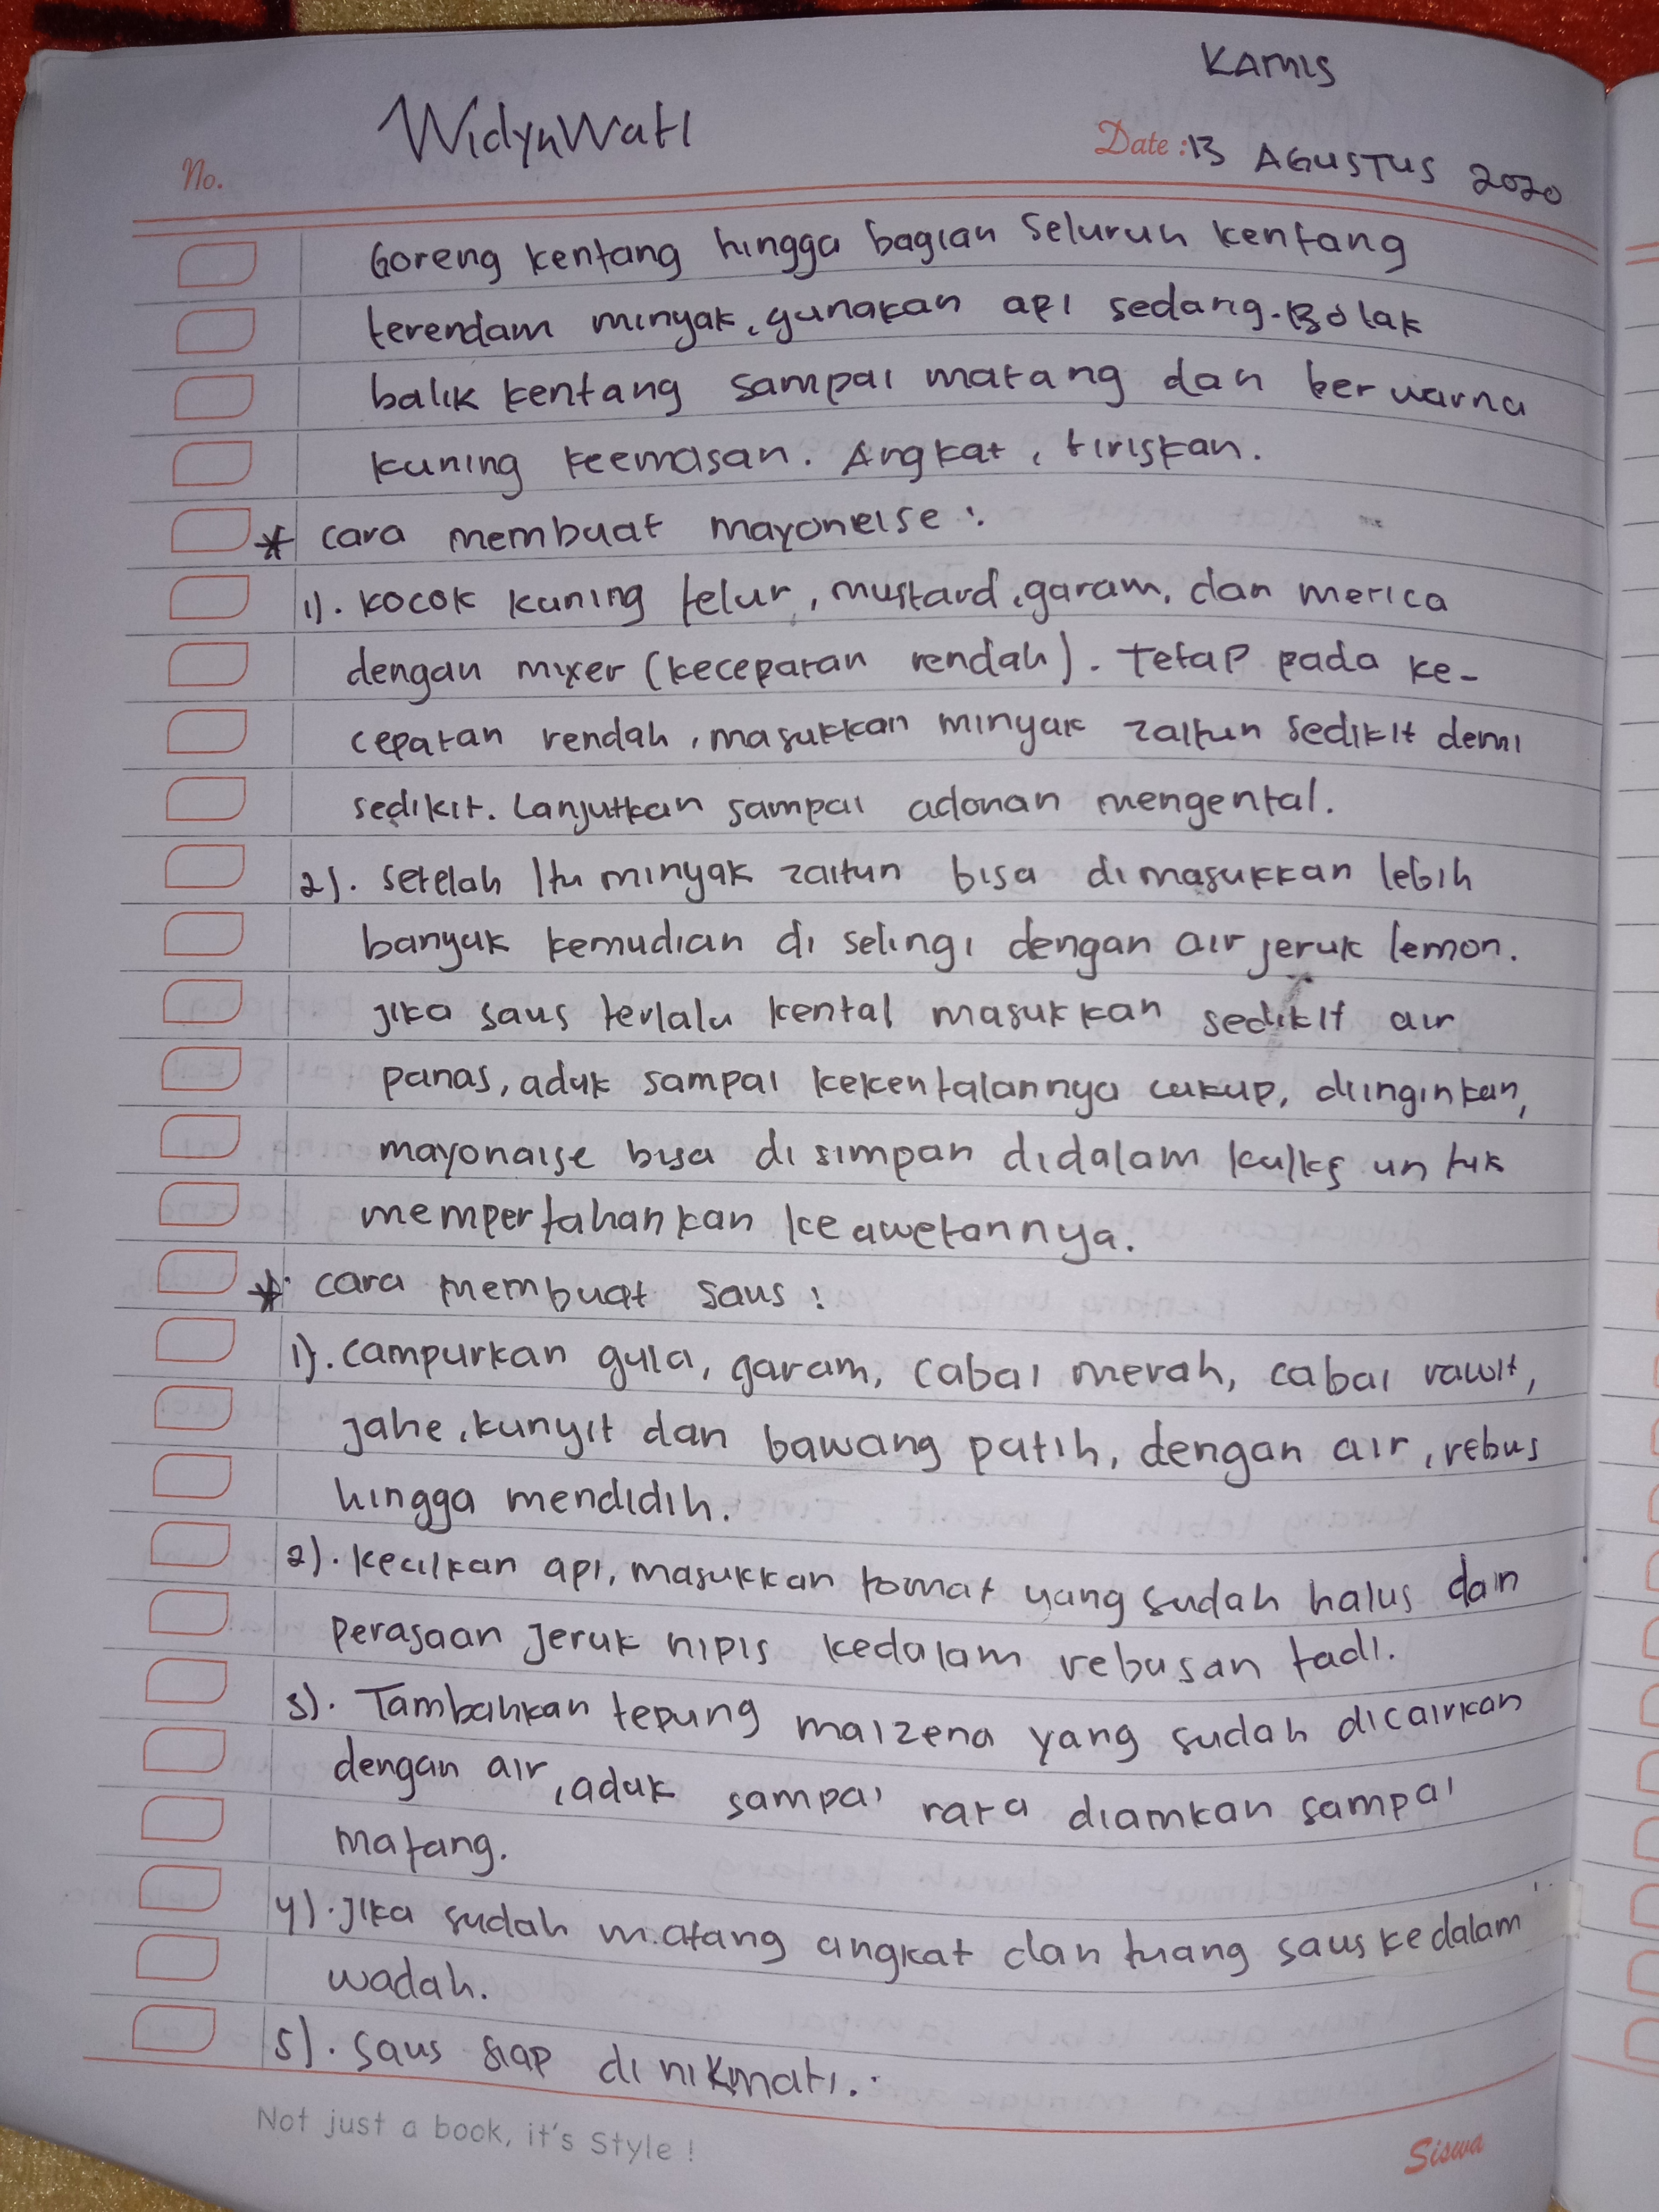 KAMIS
WidynWati
No.
Date : 13 AGUSTUS 2020
Goreng kentang hingga bagian seluruh kentang
terendam minyak, gunakan api sedang. Bolak
balik kentang sampai matang dan berwarna
kuning keemasan. Angkat, tiriskan.
* cara membuat mayoneise :
1). kocok kuning telur, mustard, garam, dan merica
dengan mixer (keceparan rendah). Tetap pada ke-
cepatan rendah, masukkan minyak zaitun sedikit demi
sedikit. Lanjutkan sampai adonan mengental.
2). setelah itu minyak zaitun bisa dimasukkan lebih
banyak kemudian di selingi dengan air jeruk lemon.
jika saus terlalu kental masukkan sedikit air
panas, aduk sampai kekentalannya cukup, diinginkan,
mayonaise bisa di simpan didalam kulks untuk
mempertahankan keawetannya.
* cara membuat saus :
1). campurkan gula, garam, cabai merah, cabai rawit,
jahe, kunyit dan bawang putih, dengan air, rebus
hingga mendidih.
2). kecilkan api, masukkan tomat yang sudah halus dan
perasaan jeruk nipis kedalam rebusan tadi.
3). Tambahkan tepung maizena yang sudah dicairkan
dengan air, aduk sampai rata diamkan sampai
matang.
4). jika sudah matang angkat dan tuang saus kedalam
wadah.
5). saus siap di nikmati.
Not just a book, it's Style !
Siswa